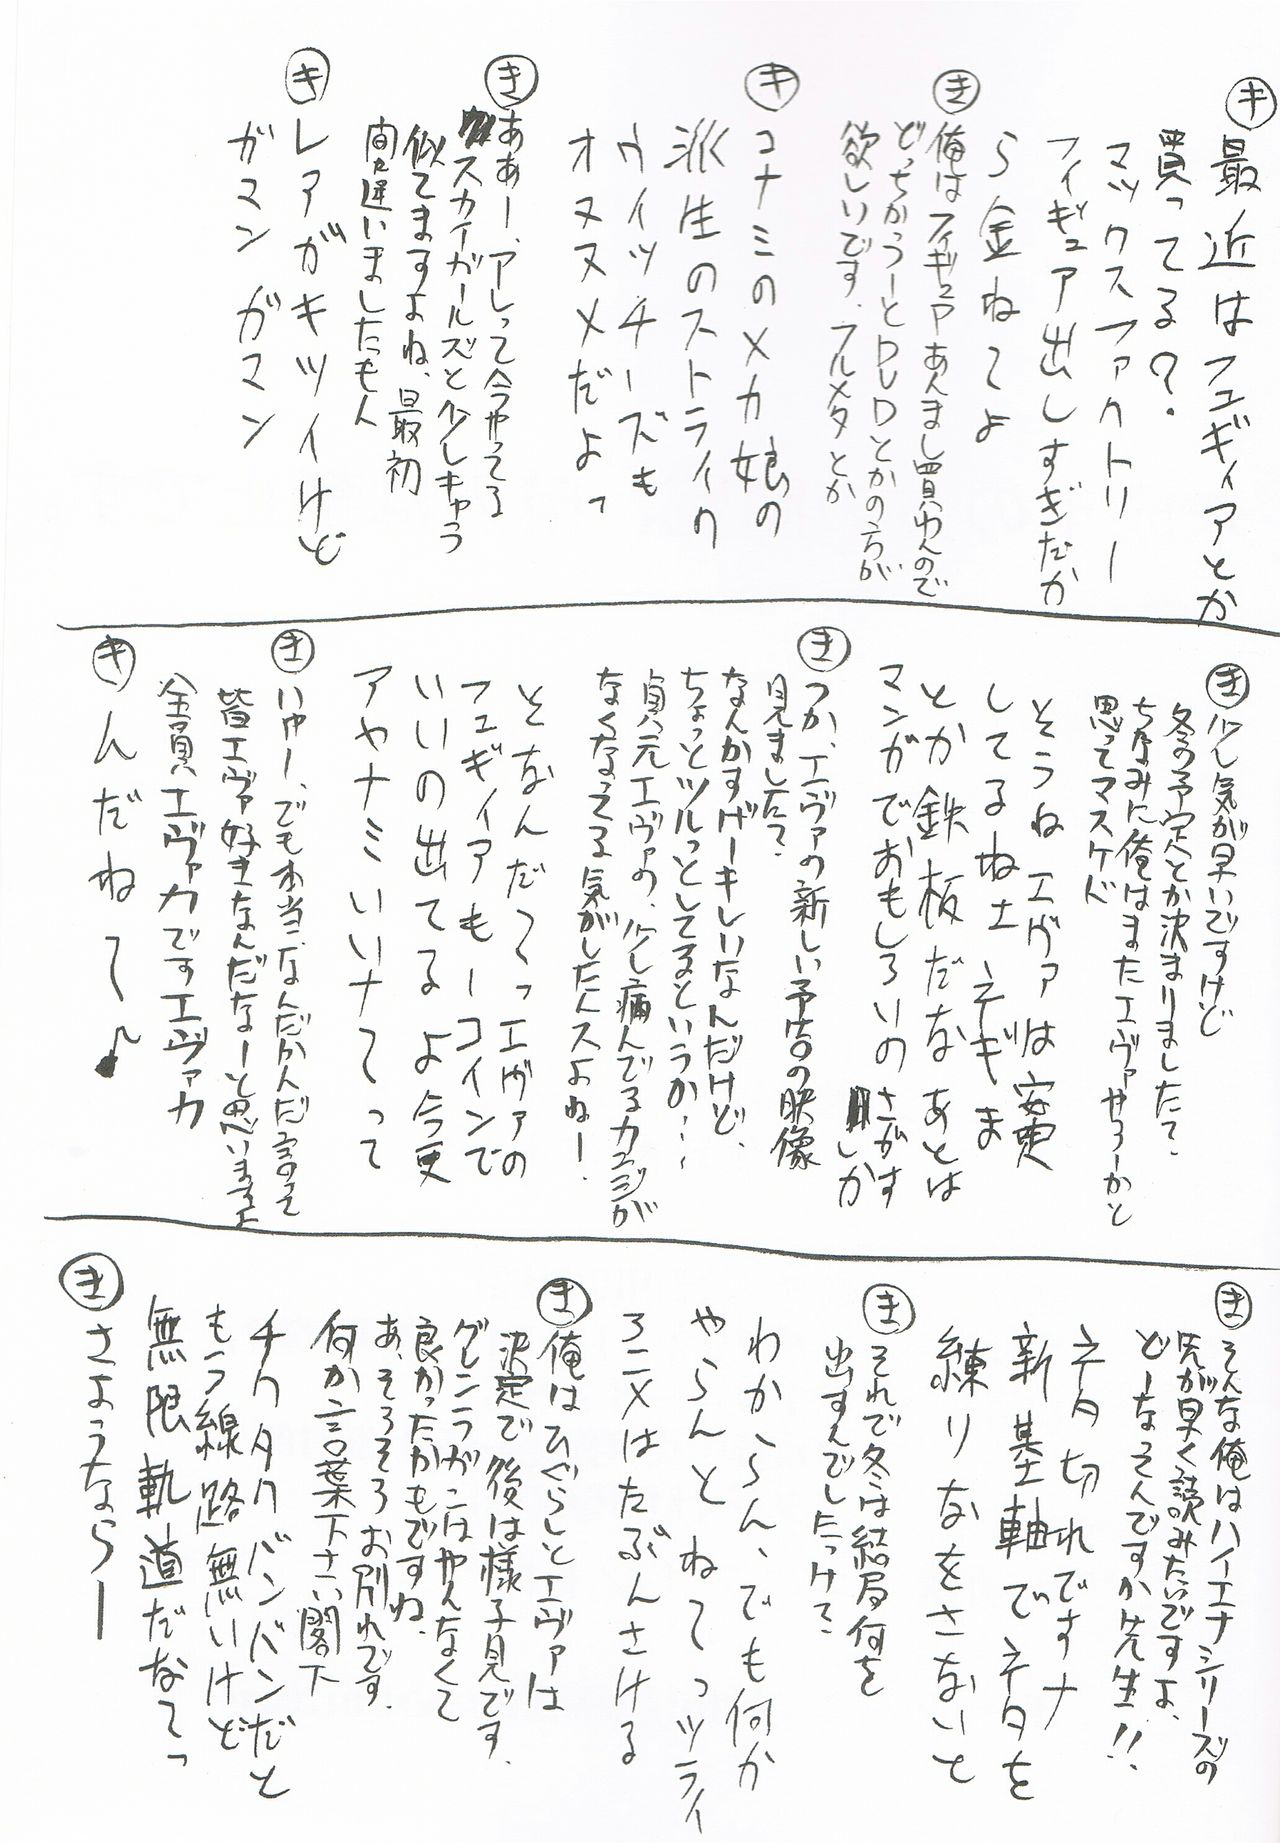 キ
最近はフュギィアとか
買ってる?
マックスファクトリー
フィギュア出しすぎだか
ら金ねてよ
き
俺はフィギュアあんまし買わんので
どっちかっつーとDVDとかの方が
欲しいです。フルメタとか
キ
コナミのメカ娘の
派生のストライク
ウィッチーズも
オヌヌメだよっ
き
ああー、アレって今やってる
スカイガールズと少しキャラ
似てますよね、最初
間違いましたもん
キ
レアがキツイけど
ガマンガマン
き
少し気が早いですけど
冬の予定とか決まりました?
ちなみに俺はまたエヴァやろーかと
思ってマスケド
そうねエヴァは安東
してるね土ネギま
とか鉄板だなあとは
マンガでおもしろいのさがす
しか
き
つか、エヴァの新しい予告の映像
見ました?
なんかすげーキレイなんだけど、
ちょっとツルっとしてるというか…
貞元エヴァの、少し病んでるカンジが
なくなってる気がしたんスよねー!
となんだ〜っエヴァの
フュギィアもーコインで
いいの出てるよ今更
アヤナミいいナてって
き
いやー、でも本当、なんだかんだ言って
皆エヴァ好きなんだなーと思いますよ
全員エヴァカですエヴァカ
キ
んだねて〜♪
き
そんな俺はハイエナシリーズの
先が早く読みたいですよ、
どーなるんですか先生!!
ネタ切れですナ
新基軸でネタを
練りなをさないと
き
それで冬は結局何を
出すんでしたっけ?
わからん、でも何か
やらんとねてっツライ
ろニメはたぶんさける
き
俺はひぐらしとエヴァは
決定で後は様子見です、
グレンラガンはやんなくて
良かったかもですね、
あ、そろそろお別れです、
何か言葉下さい閣下
チクタクバンバンだと
もう線路無いけど
無限軌道だなてっ
き
さようならー